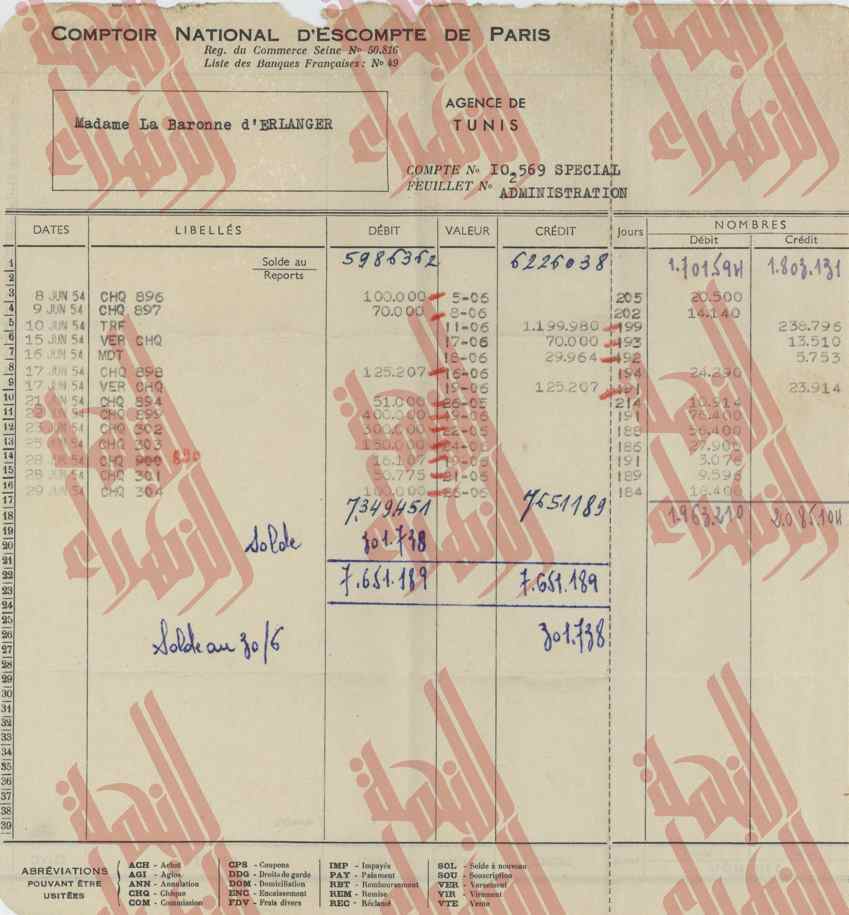 COMPTOIR NATIONAL D'ESCOMPTE DE PARIS
Reg. du Commerce Seine No 50.816
Liste des Banques Françaises : No 49
Madame La Baronne d'ERLANGER
AGENCE DE
TUNIS
COMPTE No IO2569 SPECIAL
FEUILLET No ADMINISTRATION
DATES LIBELLÉS DÉBIT VALEUR CRÉDIT Jours NOMBRES
Débit Crédit
1 Solde au 5986362 6226038 1.701594 1.803.131
2 Reports
3 8 JUN 54 CHQ 896 100.000 5-06 205 20.500
4 9 JUN 54 CHQ 897 70.000 8-06 202 14.140
5 10 JUN 54 TRF 11-06 1.199.980 199 238.796
6 15 JUN 54 VER CHQ 17-06 70.000 193 13.510
7 16 JUN 54 MDT 18-06 29.964 192 5.753
8 17 JUN 54 CHQ 898 125.207 16-06 194 24.290
9 17 JUN 54 VER CHQ 19-06 125.207 191 23.914
10 21 JUN 54 CHQ 894 51.000 26-05 214 10.914
11 JUN 54 CHQ 899 400.000 19-06 191 76.400
12 23 JUN 54 CHQ 302 300.000 22-06 188 56.400
13 25 JUN 54 CHQ 303 150.000 24-06 186 27.900
14 28 JUN 54 CHQ 890 16.107 19-06 191 3.076
15 28 JUN 54 CHQ 301 50.775 21-06 189 9.596
16 29 JUN 54 CHQ 304 100.000 26-06 184 18.400
17 7.349451 7651189
18 1.963.210 2.085.104
19
20 Solde 301.738
21
22 7.651.189 7.651.189
23
24
25
26 Solde au 30/6 301.738
27
28
29
30
31
32
33
34
35
36
37
38
39
ABRÉVIATIONS
POUVANT ÊTRE
USITÉES
ACH - Achat
AGI - Agios
ANN - Annulation
CHQ - Chèque
COM - Commission
CPS - Coupons
DDG - Droits de garde
DOM - Domiciliation
ENC - Encaissement
FDV - Frais divers
IMP - Impayés
PAY - Paiement
RBT - Remboursement
REM - Remise
REC - Réclamé
SOL - Solde à nouveau
SOU - Souscription
VER - Versement
VIR - Virement
VTE - Vente